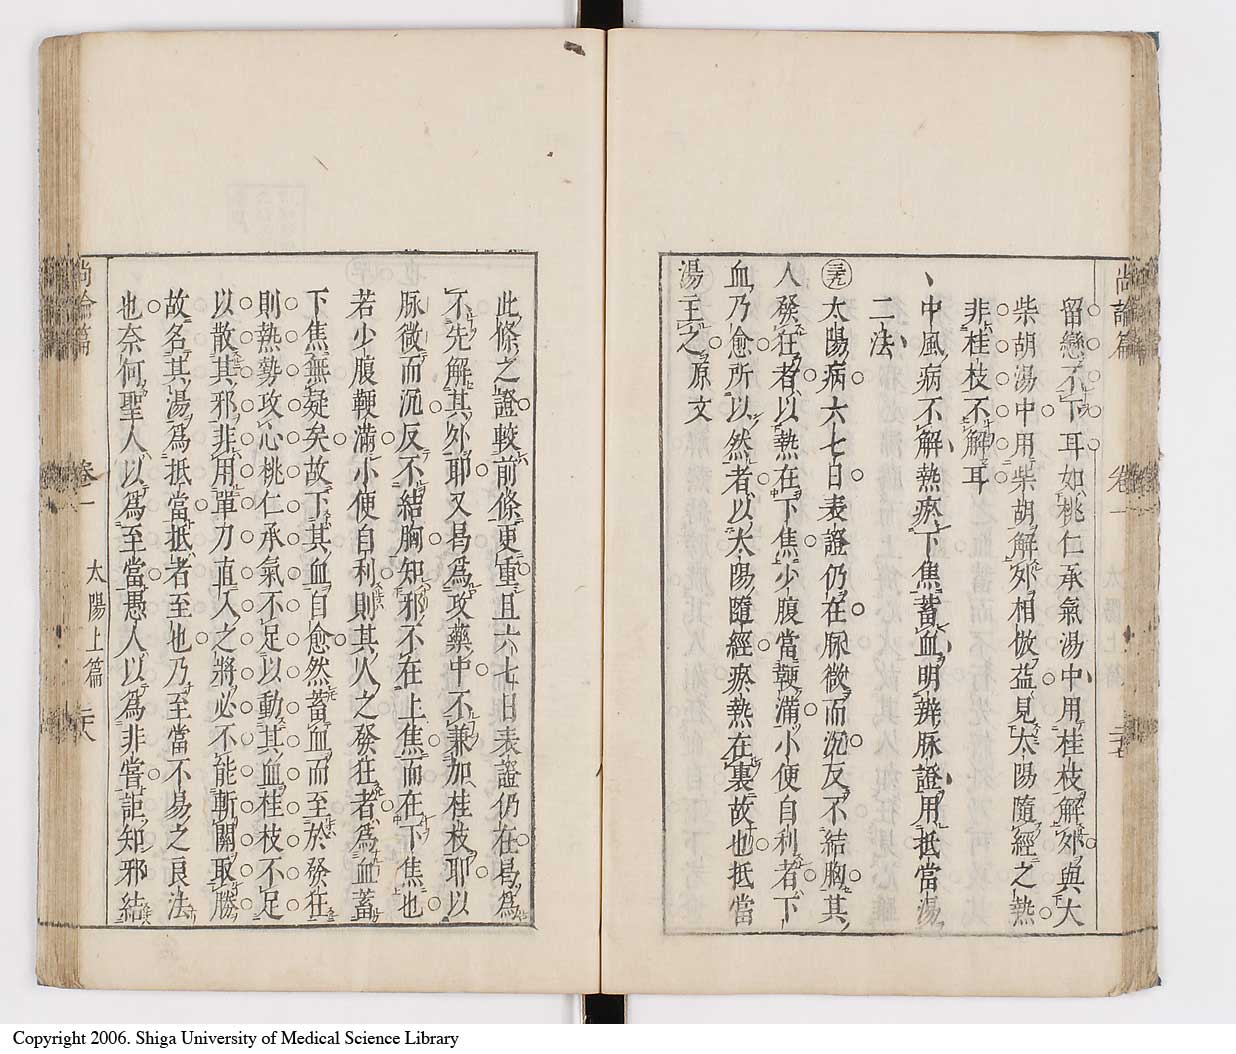 尚論篇 卷一 太陽上篇 三七
留戀不下耳如桃仁承氣湯中用桂枝解外與大
柴胡湯中用柴胡解外相倣益見太陽隨經之熱
非桂枝不解耳
中風病不解熱瘀下焦蓄血明辨脉證用抵當湯
二法
三九 太陽病六七日表證仍在脉微而沉反不結胸其
人發狂者以熱在下焦少腹當鞕滿小便自利者下
血乃愈所以然者以太陽隨經瘀熱在裏故也抵當
湯主之原文
此條之證較前條更重且六七日表證仍在曷爲
不先解其外耶又曷爲攻藥中不兼加桂枝耶以
脉微而沉反不結胸知邪不在上焦而在下焦也
若少腹鞕滿小便自利則其人之發狂者爲血蓄
下焦無疑矣故下其血自愈然蓄血而至於發狂
則熱勢攻心桃仁承氣不足以動其血桂枝不足
以散其邪非用單刀直入之將必不能斬關取勝
故名其湯爲抵當抵者至也乃至當不易之良法
也奈何聖人以爲至當愚人以爲非嘗詎知邪結
尚論篇 卷一 太陽上篇 三八
Copyright 2006. Shiga University of Medical Science Library